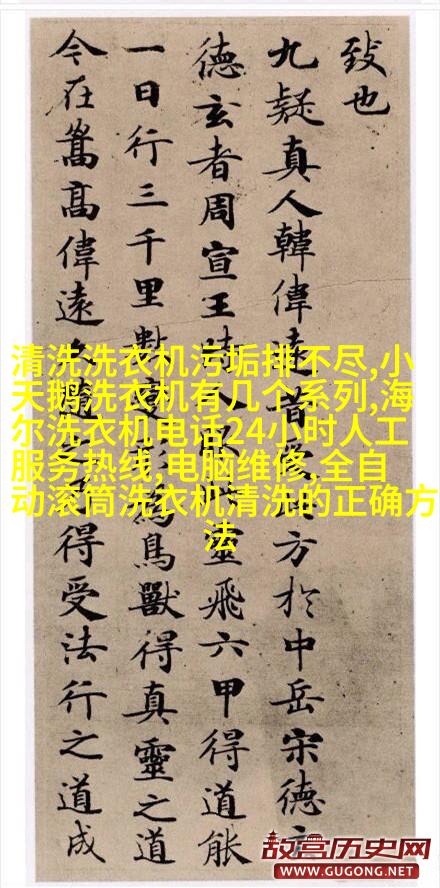 致也
九疑真人韓偉遠昔方於中岳宋德玄
德玄者周宣王時人服此靈飛六甲得道能
一日行三千里數變形為鳥獸得真靈之道
今在嵩高偉遠得受法行之道成
清洗洗衣机污垢排不尽,小
天鹅洗衣机有几个系列,海
尔洗衣机电话24小时人工
服务热线,电脑维修,全自
动滚筒洗衣机清洗的正确方
法
故宫历史网
WWW.GUGONG.NET